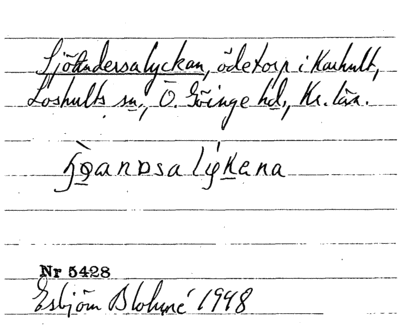 Sjöandersalyckan, ödetorp i Karhult,
Loshults sn., Ö. Göinge hd., Kr. län.
ɧø̀anᴅsalýkena
Nr 5428
Esbjörn Blohmé 1948